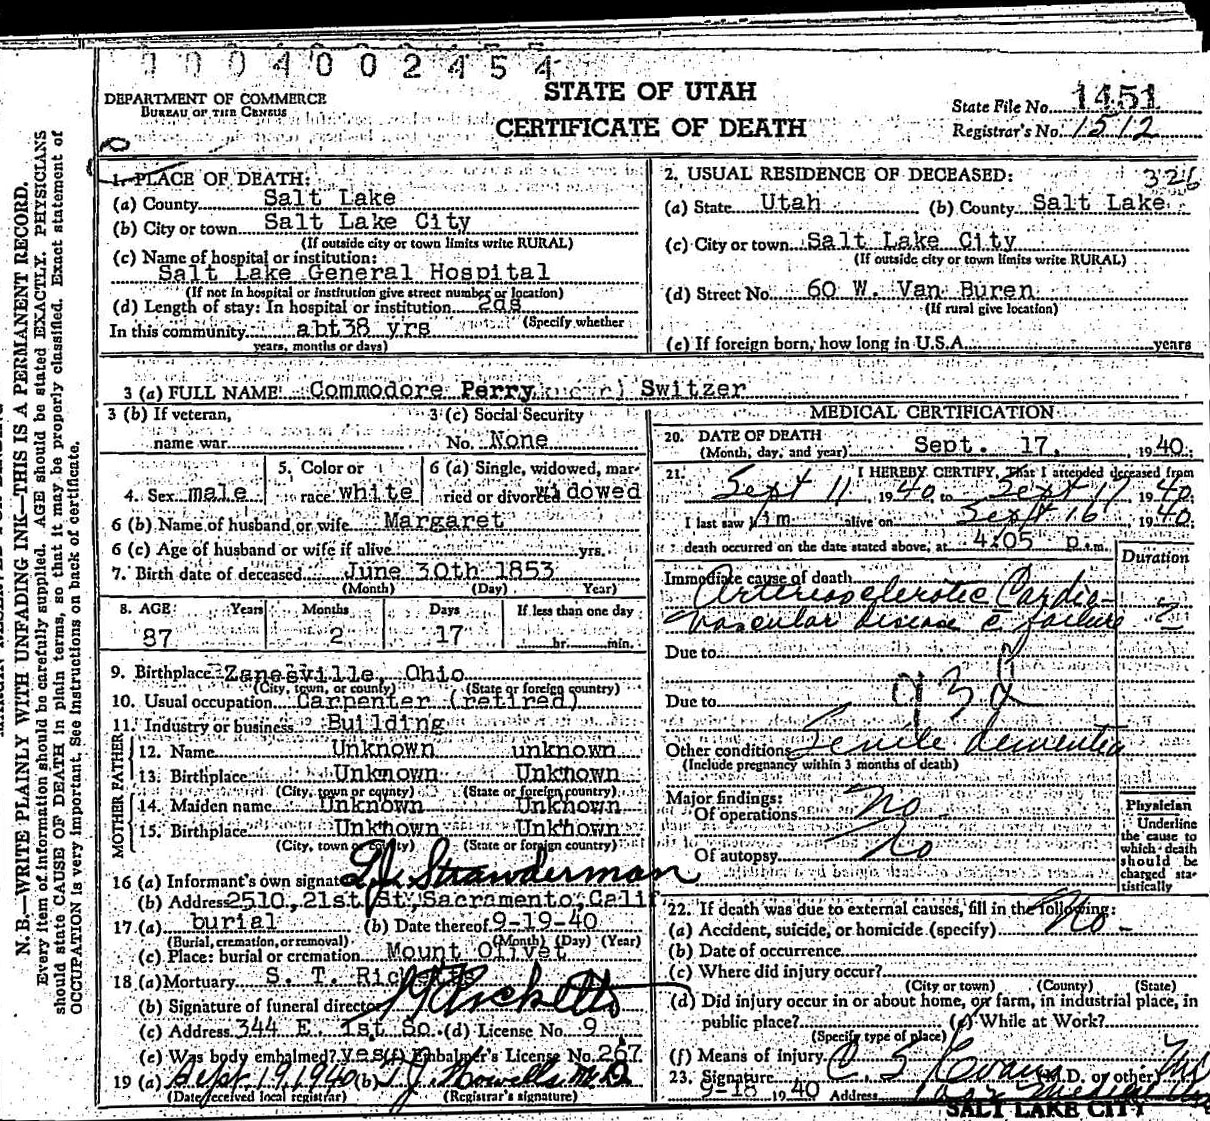 1004002454
STATE OF UTAH
CERTIFICATE OF DEATH
DEPARTMENT OF COMMERCE
BUREAU OF THE CENSUS
State File No. 1451
Registrar's No. 1512
N. B.—WRITE PLAINLY WITH UNFADING INK—THIS IS A PERMANENT RECORD.
Every item of information should be carefully supplied. AGE should be stated EXACTLY. PHYSICIANS
should state CAUSE OF DEATH in plain terms, so that it may be properly classified. Exact statement of
OCCUPATION is very important. See instructions on back of certificate.
1. PLACE OF DEATH:
(a) County Salt Lake
(b) City or town Salt Lake City
(If outside city or town limits write RURAL)
(c) Name of hospital or institution:
Salt Lake General Hospital
(If not in hospital or institution give street number or location)
(d) Length of stay: In hospital or institution 2ds
(Specify whether
In this community abt38 yrs
years, months or days)
2. USUAL RESIDENCE OF DECEASED: 326
(a) State Utah (b) County Salt Lake
(c) City or town Salt Lake City
(If outside city or town limits write RURAL)
(d) Street No. 60 W. Van Buren
(If rural give location)
(e) If foreign born, how long in U.S.A. years
3 (a) FULL NAME Commodore Perry Switzer
3 (b) If veteran,
name war
3 (c) Social Security
No. None
4. Sex male
5. Color or
race white
6 (a) Single, widowed, mar-
ried or divorced widowed
6 (b) Name of husband or wife Margaret
6 (c) Age of husband or wife if alive yrs.
7. Birth date of deceased June 30th 1853
(Month) (Day) Year)
8. AGE: Years Months Days If less than one day
87 2 17 hr. min.
9. Birthplace Zanesville, Ohio
(City, town, or county) (State or foreign country)
10. Usual occupation Carpenter (retired)
11. Industry or business Building
FATHER
12. Name Unknown unknown
13. Birthplace Unknown Unknown
(City, town or county) (State or foreign country)
MOTHER
14. Maiden name Unknown Unknown
15. Birthplace Unknown Unknown
(City, town or county) (State or foreign country)
16 (a) Informant's own signature L. J. Strawderman
(b) Address 2510, 21st St, Sacramento, Calif
17 (a) burial (b) Date thereof 9-19-40
(Burial, cremation, or removal) (Month) (Day) (Year)
(c) Place: burial or cremation Mount Olivet
18 (a) Mortuary S. T. Ricketts
(b) Signature of funeral director Ricketts
(c) Address 344 E. 1st So. (d) License No. 9
(e) Was body embalmed? yes (f) Embalmer's License No. 267
19 (a) Sept. 19, 1940 (b) T J Howells M D
(Date received local registrar) (Registrar's signature)
MEDICAL CERTIFICATION
20. DATE OF DEATH
(Month, day, and year) Sept. 17, 1940
21. I HEREBY CERTIFY, That I attended deceased from
Sept 11 1940 to Sept 17 1940;
I last saw him alive on Sept 16, 1940;
death occurred on the date stated above, at 4:05 p.m.
Duration
Immediate cause of death
Arteriosclerotic Cardio-
vascular disease c failure ?
Due to
Due to 93d
Other conditions Senile dementia
(Include pregnancy within 3 months of death)
Major findings:
Of operations No
Of autopsy No
Physician
Underline
the cause to
which death
should be
charged sta-
tistically
22. If death was due to external causes, fill in the following:
(a) Accident, suicide, or homicide (specify) No -
(b) Date of occurrence
(c) Where did injury occur?
(City or town) (County) (State)
(d) Did injury occur in or about home, on farm, in industrial place, in
public place? (e) While at Work?
(Specify type of place)
(f) Means of injury
23. Signature C S Evans (M.D. or other)
9-18 1940 Address
SALT LAKE CITY